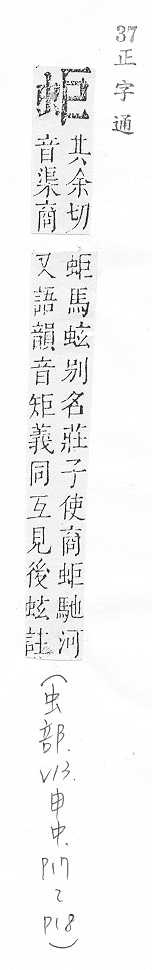 37正字通
蚷
其余切
音渠商
蚷馬蚿別名莊子使商蚷馳河
又語韻音矩義同互見後蚿註
(虫部. V13. 申中. P17 ~ P18)